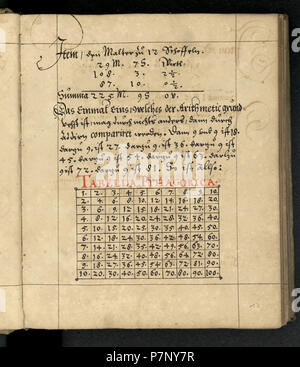 Item, drei Malter zu 12 Scheffeln.
29 M. 7 S. Viertl.
108. 3. 2½.
87. 10. 0½.
Summa 225 M. 9 S. 0 v.
Das Einmal Eins, welches der Arithmetic grund
ist, mag durch nichts anders, dann durch
addirn comparirt werden. Dann 9 und 9 ist 18.
darzu 9, ist 27. darzu 9, ist 36. darzu 9 ist
45. darzu 9 ist 54. darzu 9 ist 63. darzu
9 ist 72. darzu 9 ist 81. So ist allso:
TABULA PYTAGORICA.
1. 2. 3. 4. 5. 6. 7. 8. 9. 10.
2. 4. 6. 8. 10. 12. 14. 16. 18. 20.
3. 6. 9. 12. 15. 18. 21. 24. 27. 30.
4. 8. 12. 16. 20. 24. 28. 32. 36. 40.
5. 10. 15. 20. 25. 30. 35. 40. 45. 50.
6. 12. 18. 24. 30. 36. 42. 48. 54. 60.
7. 14. 21. 28. 35. 42. 49. 56. 63. 70.
8. 16. 24. 32. 40. 48. 56. 64. 72. 80.
9. 18. 27. 36. 45. 54. 63. 72. 81. 90.
10. 20. 30. 40. 50. 60. 70. 80. 90. 100.
alamy
www.alamy.com - P7NY7R